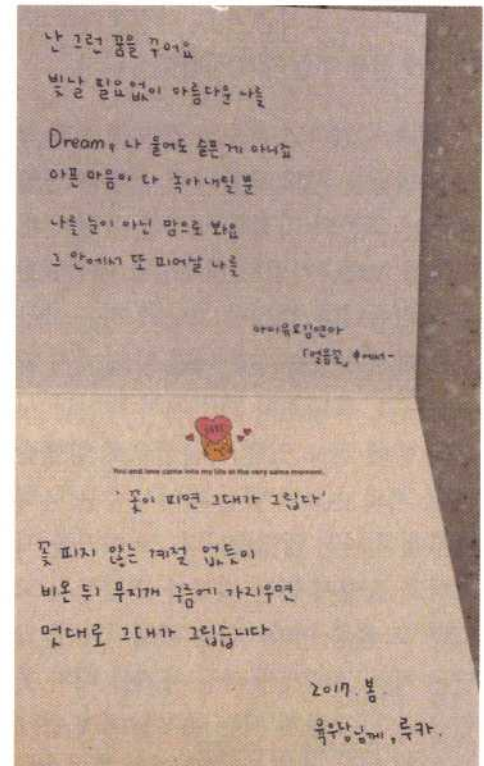 난 그런 꿈을 꾸어요
빛날 필요 없이 아름다운 나를
Dream, 나 울어도 슬픈 게 아니죠
아픈 마음이 다 녹아내릴 뿐
나를 눈이 아닌 맘으로 봐요
그 안에서 또 피어날 나를
아이유&김연아
「얼음꽃」中에서-
LOVE
You and love came into my life at the very same moment.
'꽃이 피면 그대가 그립다'
꽃 피지 않는 계절 없듯이
비온 뒤 무지개 구름에 가리우면
멋대로 그대가 그립습니다
2017. 봄.
육우당님께, 루카.